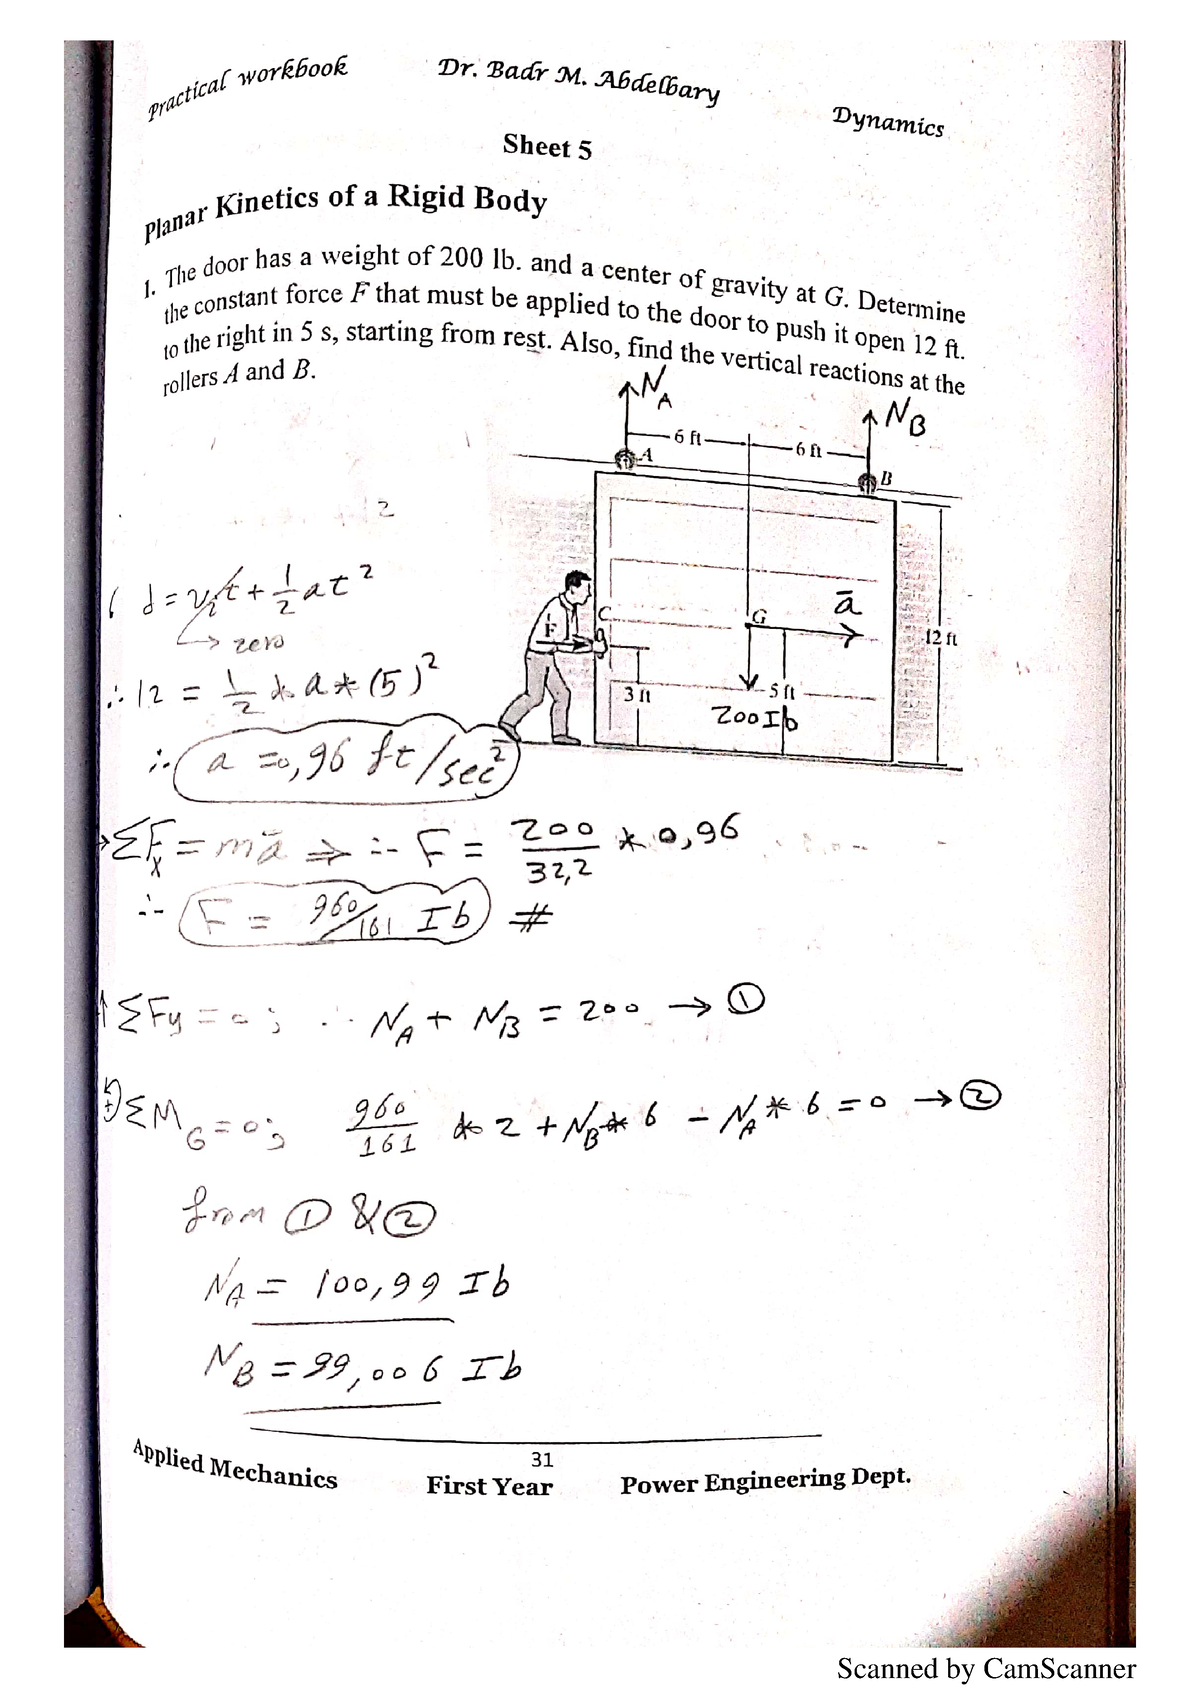 Practical workbook Dr. Badr M. Abdelbary Dynamics
Sheet 5
Planar Kinetics of a Rigid Body
1. The door has a weight of 200 lb. and a center of gravity at G. Determine
the constant force F that must be applied to the door to push it open 12 ft.
to the right in 5 s, starting from rest. Also, find the vertical reactions at the
rollers A and B.
N_A
N_B
6 ft
6 ft
A
B
2
d = v_i t + 1/2 at²
→ zero
∴ 12 = 1/2 * a * (5)²
∴ a = 0,96 ft/sec²
C
F
G
ā
12 ft
3 ft
5 ft
200 Ib
→ΣF_x = mā ⇒ ∴ F = 200/32,2 * 0,96
∴ F = 960/161 Ib #
↑ΣFy = 0; ∴ N_A + N_B = 200 → ①
ΣM_G = 0; 960/161 * 2 + N_B * 6 - N_A * 6 = 0 → ②
from ① & ②
N_A = 100,99 Ib
N_B = 99,006 Ib
31
Applied Mechanics First Year Power Engineering Dept.
Scanned by CamScanner